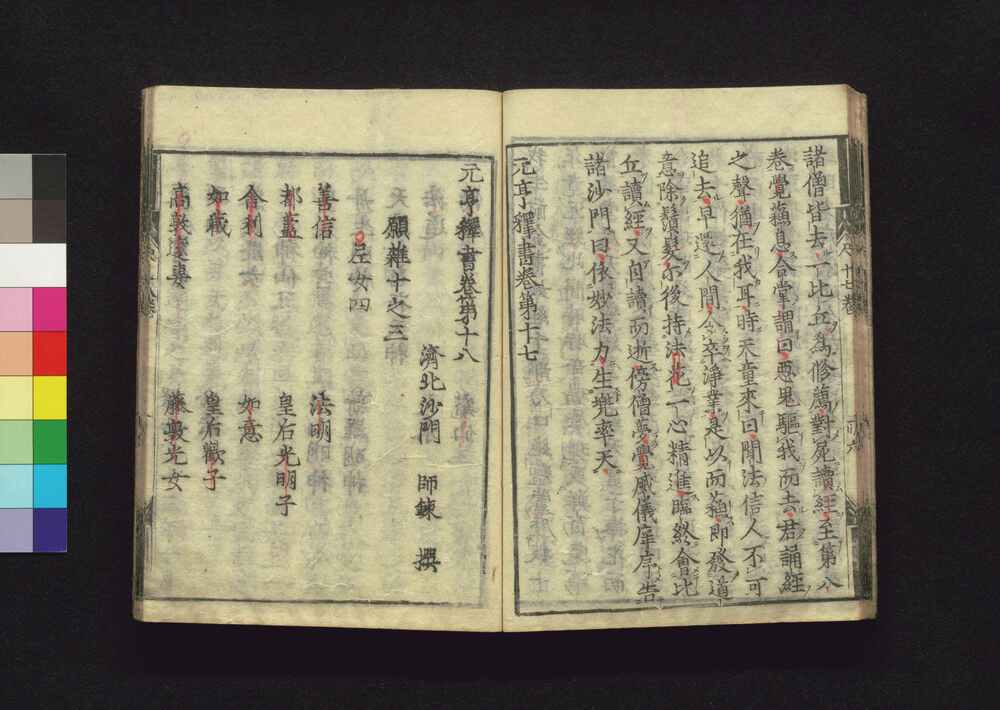 諸僧皆去一比丘為修薦對尸讀經至第八
卷覺蘓息合掌謂曰惡鬼驅我而去君誦經
之聲猶在我耳時天童來曰聞法信人不可
追去早還人間令卒淨業是以而蘓即發道
意除鬚髮尓後持法花一心精進臨終會比
丘讀經又自讀而逝傍僧夢覺威儀庠序告
諸沙門曰依妙法力生兜率天
元亨釋書卷第十七
元亨釋書卷第十八
濟北沙門 師錬 撰
願雜十之三
尼女四
善信 法明
都藍 皇后光明子
舍利 如意
如藏 皇后歡子
高敦遠妻 藤敦光女